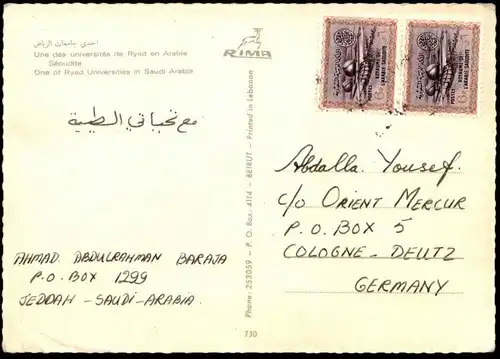 احدى جامعات الرياض
Une des universités de Ryad en Arabie
Séoudite
One of Ryad Universities in Saudi Arabia
RIMA
مع تحياتي الطيبة
AHMAD ABDULRAHMAN BARAJA
P.O. BOX 1299
JEDDAH - SAUDI-ARABIA.
Phone. 253059 - P. O. Box. 4114 - BEIRUT - Printed in Lebanon
730
Abdalla Yousef.
C/O ORIENT MERCUR
P.O. BOX 5
COLOGNE - DEUTZ
GERMANY